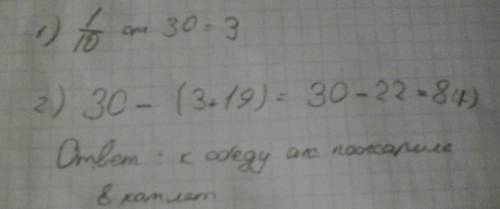 1) 1/10 от 30 = 3
2) 30 - (3+19) = 30 - 22 = 8(к)
Ответ: к обеду
8 котлет